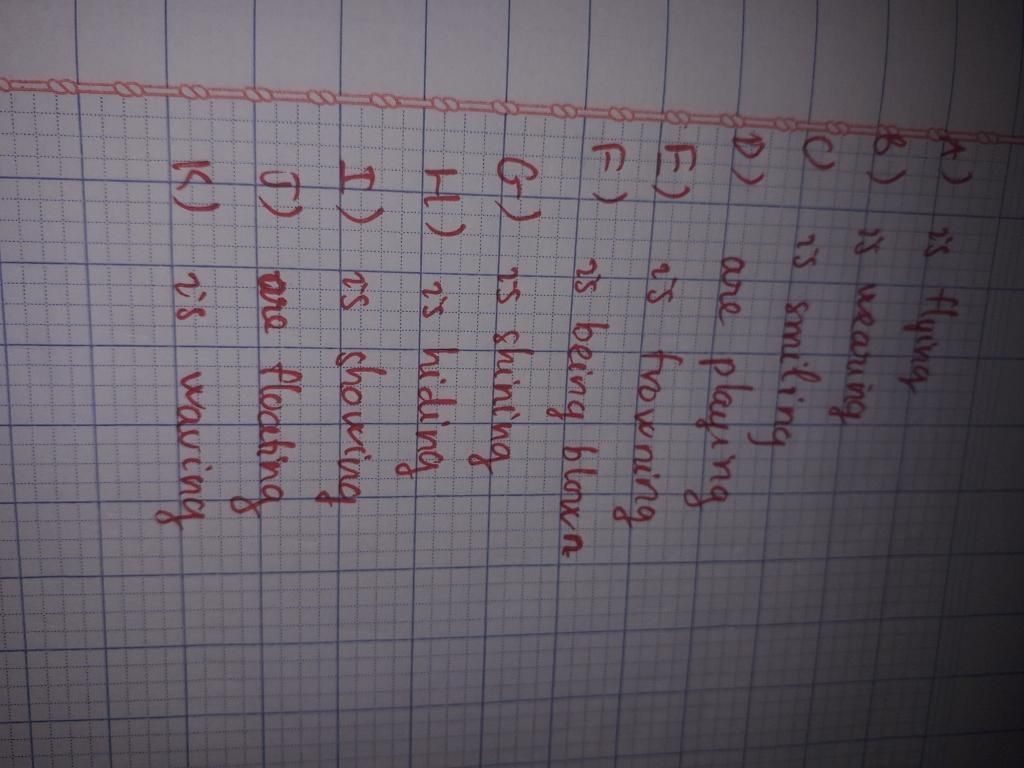 A) is flying
B) is wearing
C) is smiling
D) are playing
E) is frowning
F) is being blown
G) is shining
H) is hiding
I) is showing
J) are floating
K) is waving